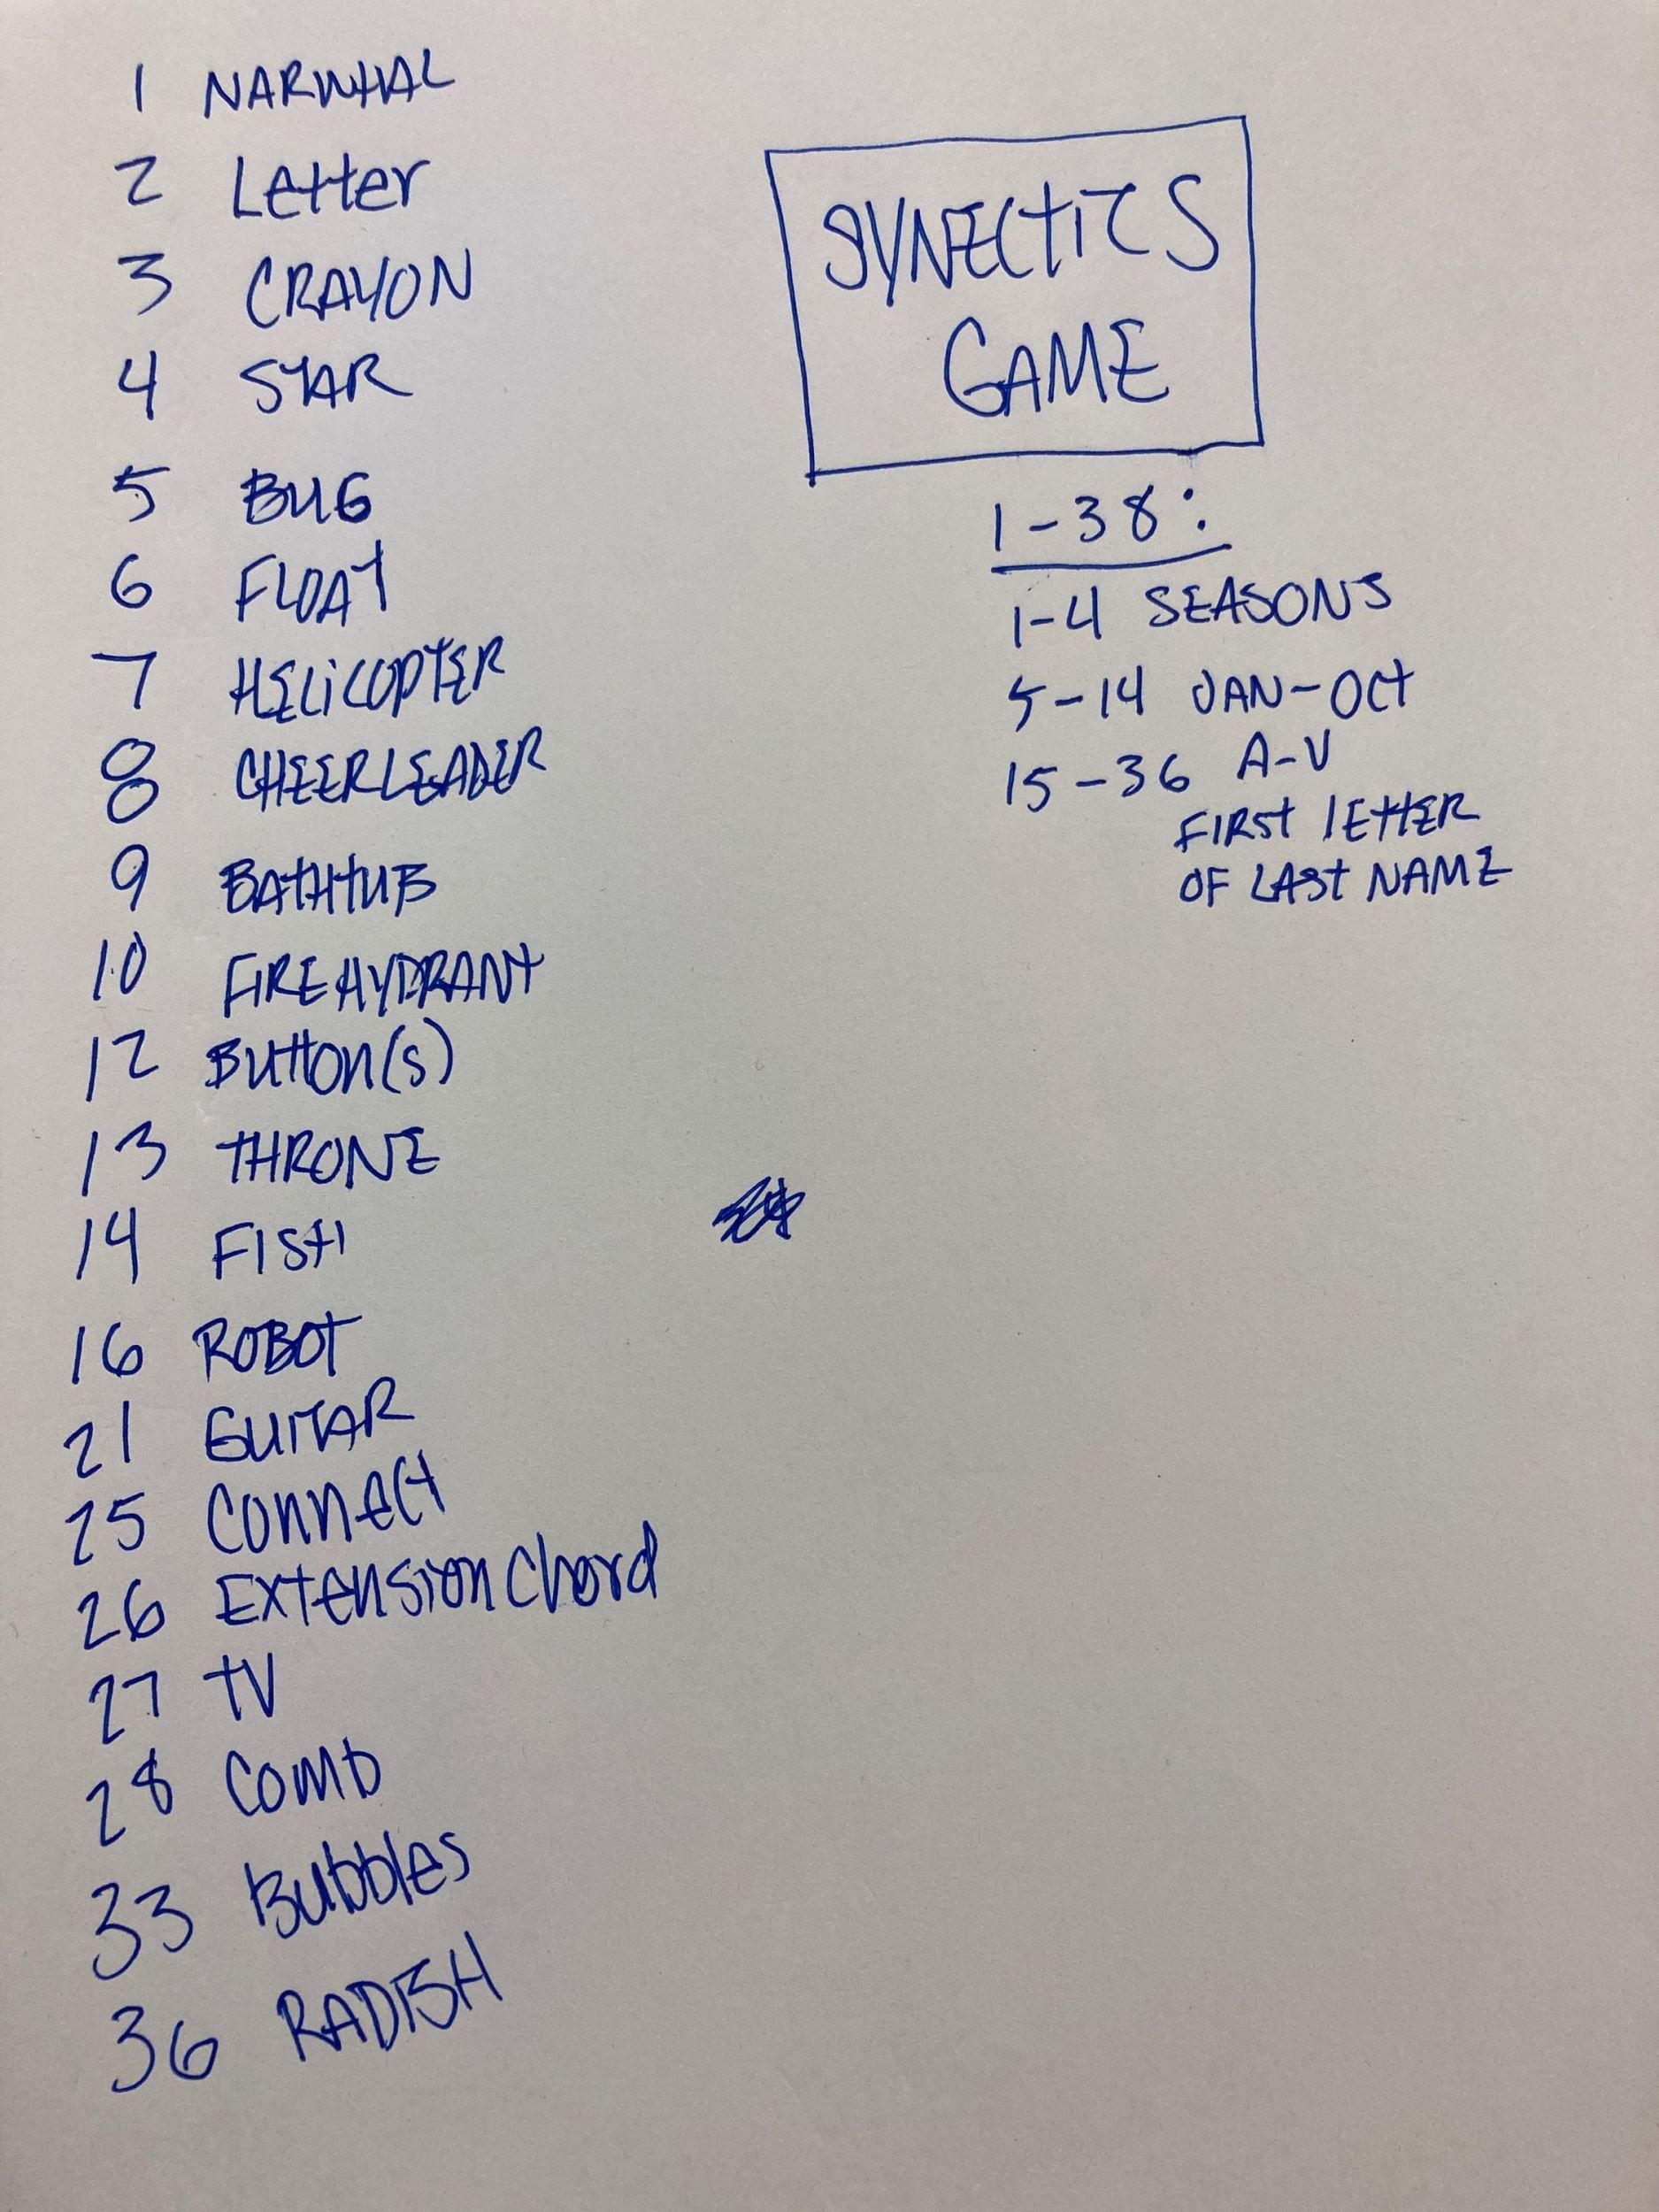 1 NARWHAL
2 Letter
3 CRAYON
4 STAR
5 BUG
6 FLOAT
7 HELiCOPTER
8 CHEERLEADER
9 BATHTUB
10 FIREHYDRANT
12 Button(s)
13 THRONE
14 FISH
16 ROBOT
21 GUITAR
25 Connect
26 Extension Chord
27 TV
28 Comb
33 Bubbles
36 RADISH
SYNECTICS
GAME
1-38:
1-4 SEASONS
5-14 JAN-OCT
15-36 A-V
FIRST LETTER
OF LAST NAME